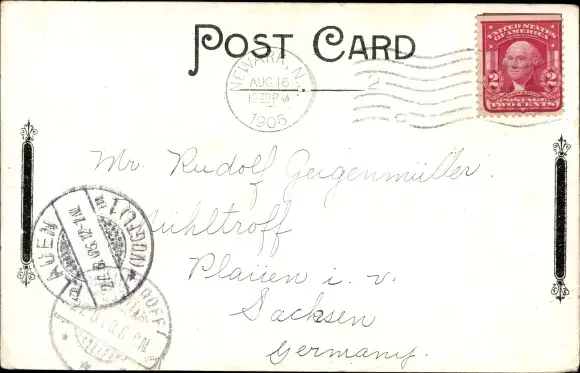 POST CARD
NEWARK, N.
AUG 16
12 30 PM
1906
2
UNITED STATES
OF AMERICA
2 2
POSTAGE
TWO CENTS
Mr. Rudolf Geigenmüller
Mühltroff
Plauen i. v.
Sachsen
Germany.
PLAUEN (VOGTL) 1
26.8.06.12-1